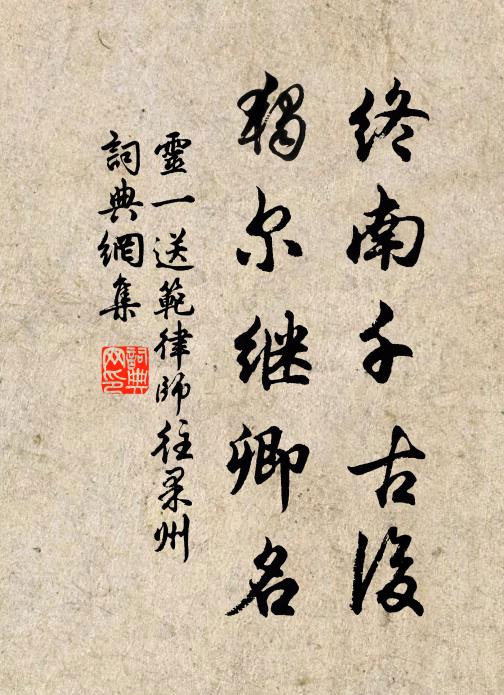 终南千古後
独尔继卿名
靈一送範律師往果州
詞典網集
詞典網印